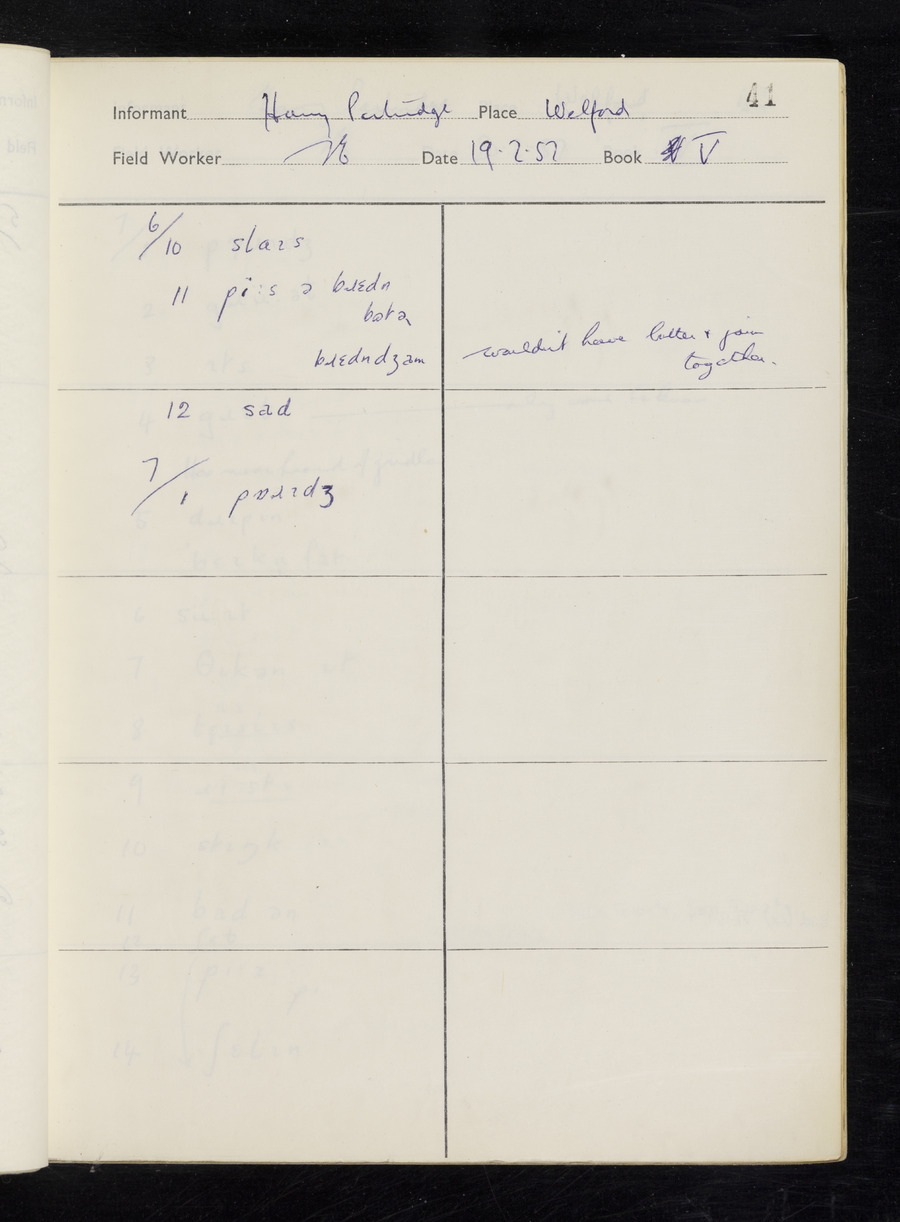 41
Informant Harry Partridge Place Welford
Field Worker Date 19.2.57 Book V
6/10 slaɪs
11 pi:s ə bɹɛdn
bətə
bɹɛdndʒam wouldn't have butter & jam
together.
12 sad
7/1 pɒɹɪdʒ